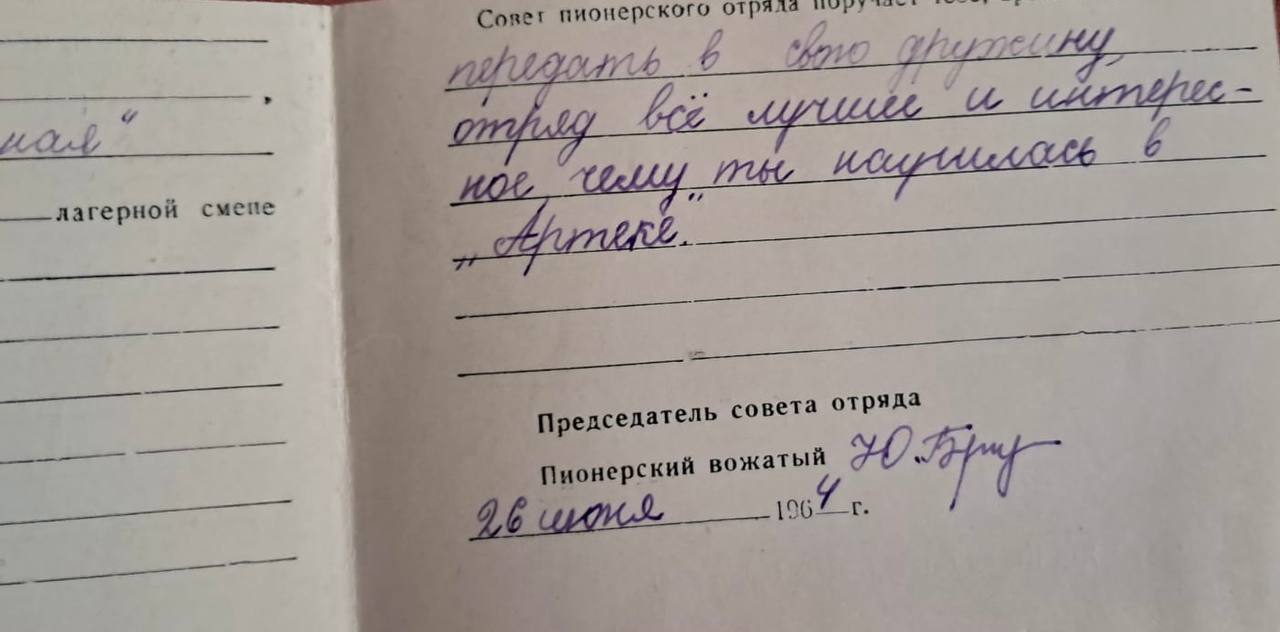 ная"
лагерной смене
Совет пионерского отряда поручает тебе,
передать в свою дружину,
отряд всё лучшее и интерес-
ное, чему ты научилась в
„Артеке".
Председатель совета отряда
Пионерский вожатый Ю.
26 июня 1964 г.